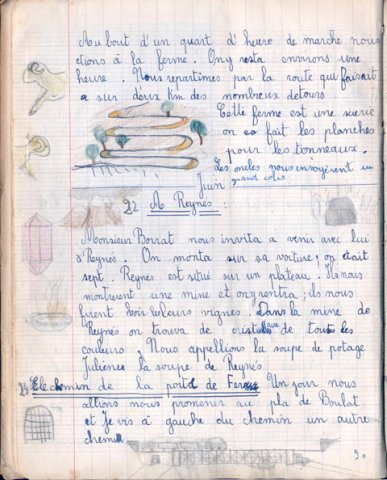 Au bout d'un quart d'heure de marche nous
étions à la ferme. On y resta environs une
heure. Nous repartimes par la route qui faisait
a sur deux Km des nombreux detours
Cette ferme est une scierie
on fait les planches
pour les tonneaux.
Les oncles nous envoyèrent un
grand colis.
Juin
22 A Reynès:
Monsieur Borrat nous invita a venir avec lui
à Reynès. On monta sur sa voiture; on était
sept. Reynes est situé sur un plateau. Ils nous
montrèrent une mine et on y rentra; ils nous
firent voir leleurs vignes. Dans la mine de
Reynès on trouva de cristeaux de toutes les
couleurs. Nous appellions la soupe de potage
Juliènes la soupe de Reynès
23 Le chemin de la porte de Fer Un jour nous
allions nous promener au pla de Boulat
et je vis à gauche du chemin un autre
chemin
20